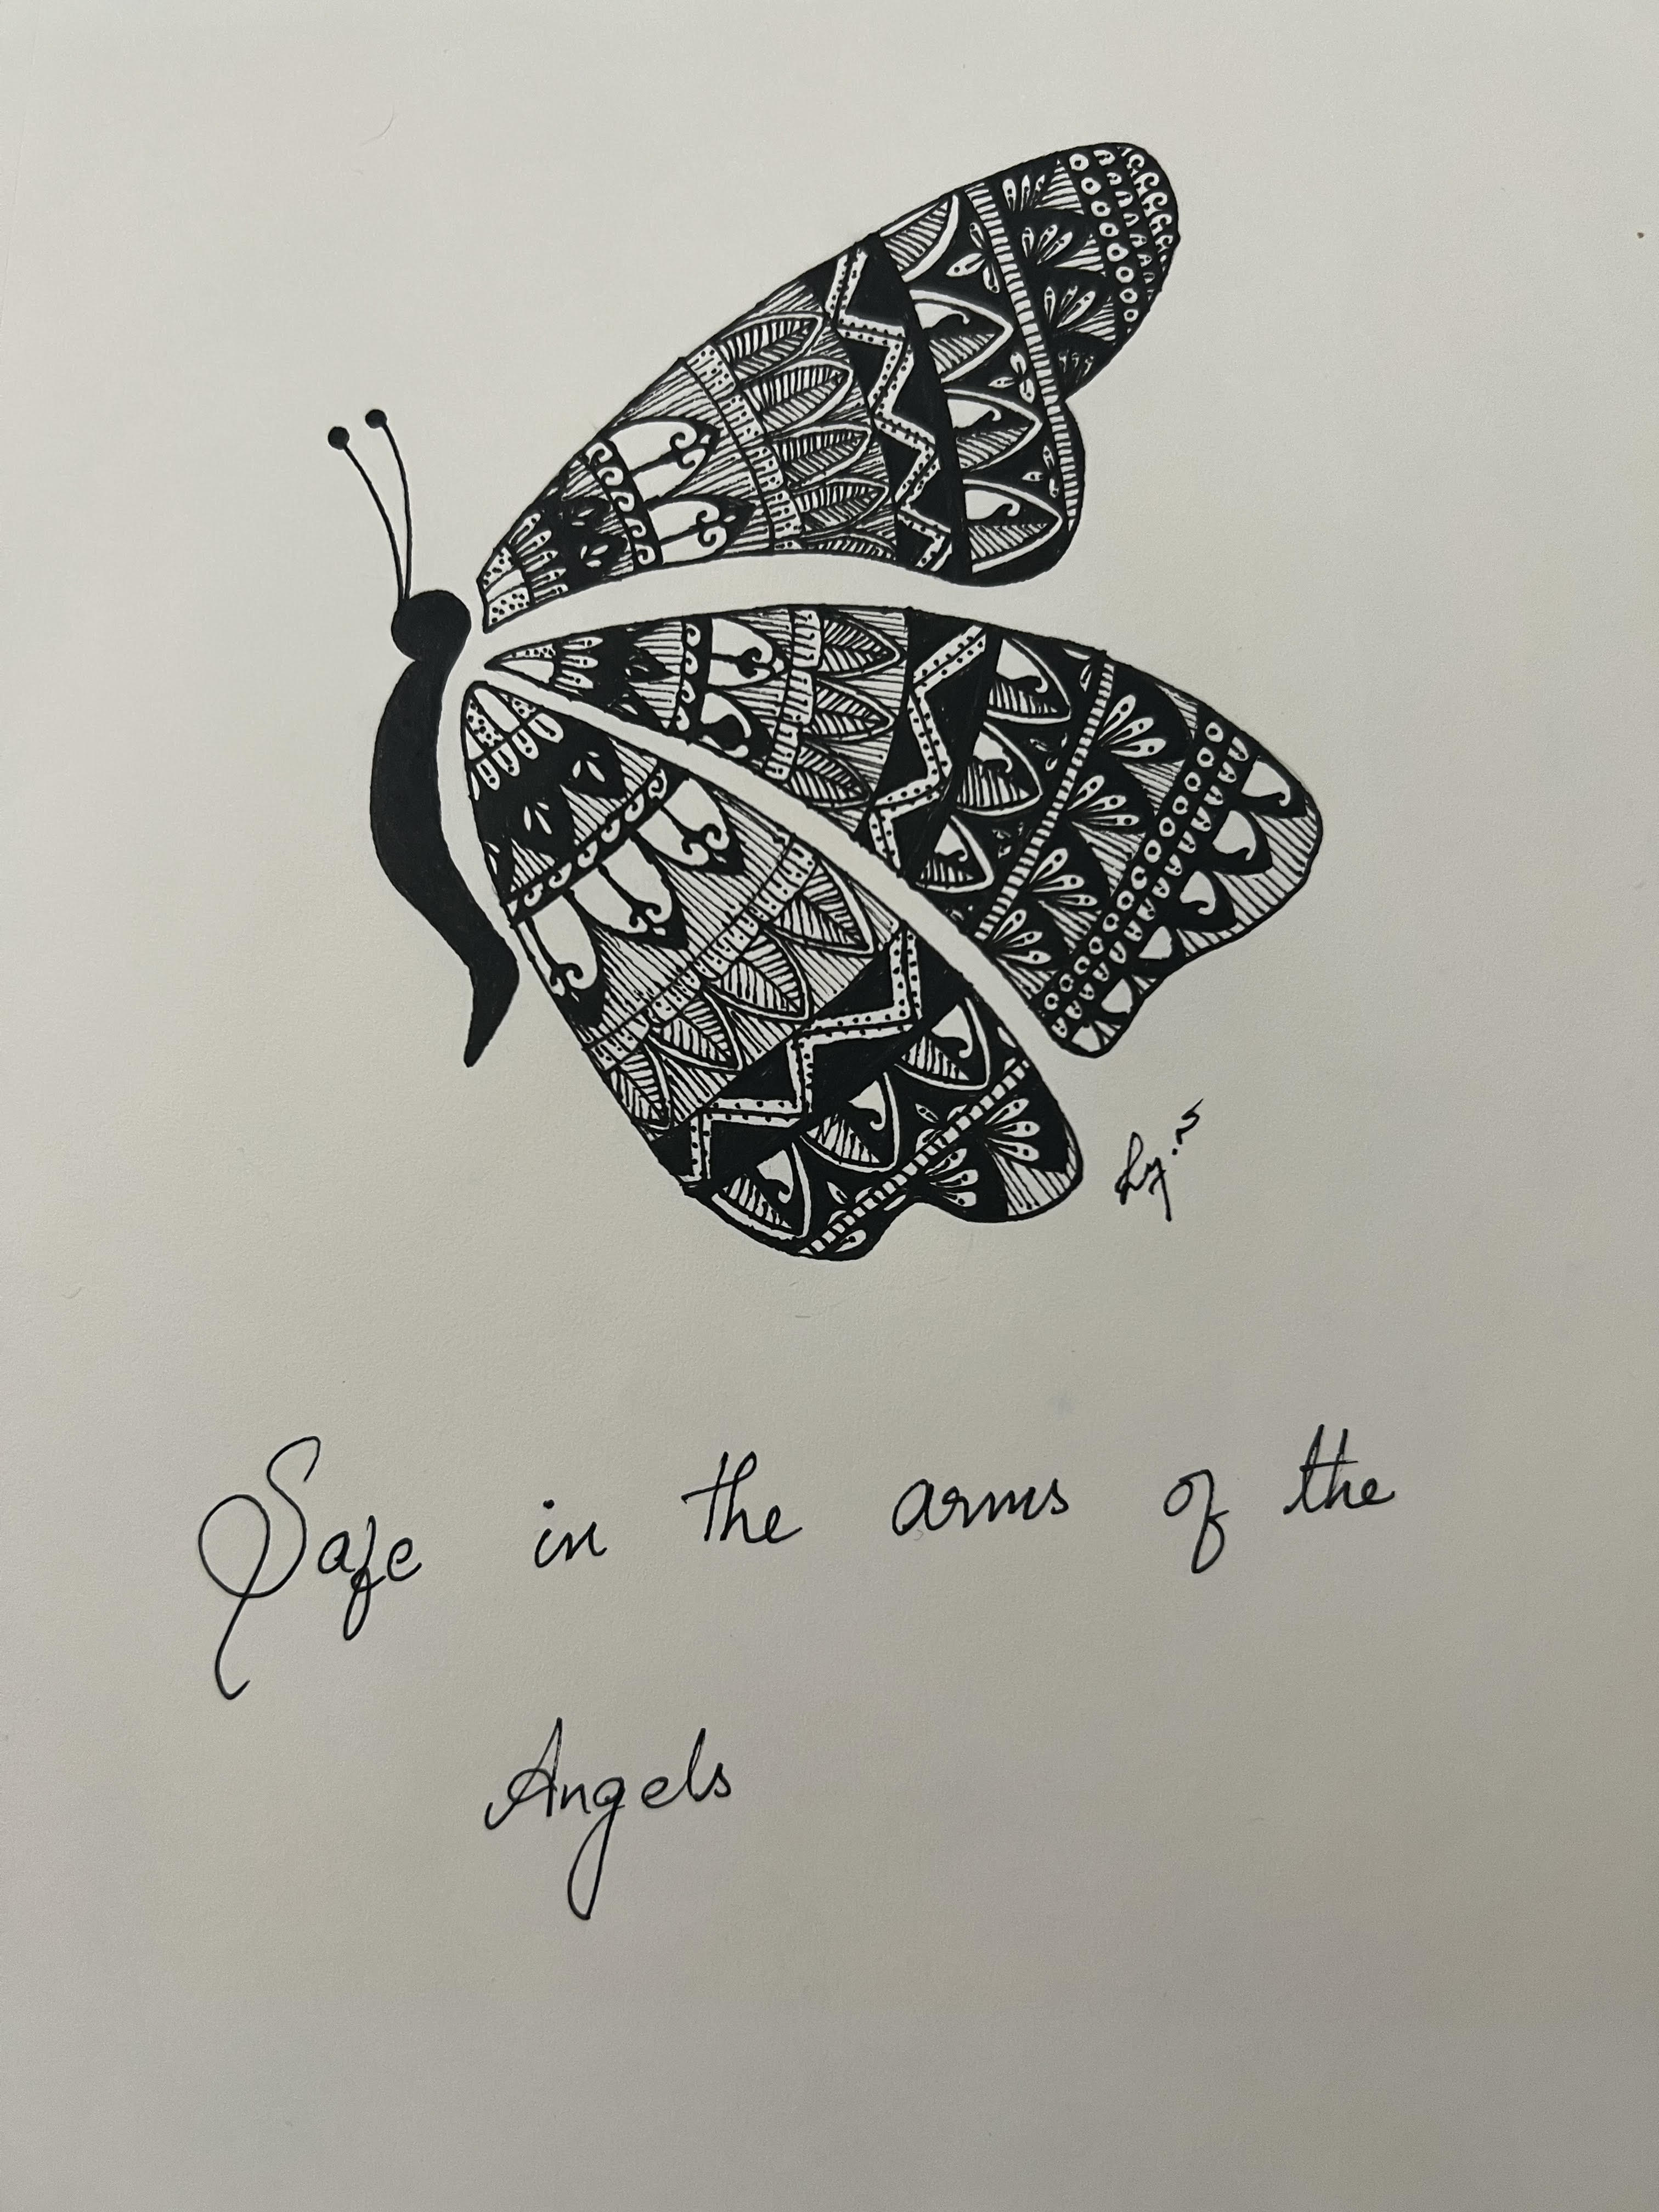 Safe in the arms of the
Angels